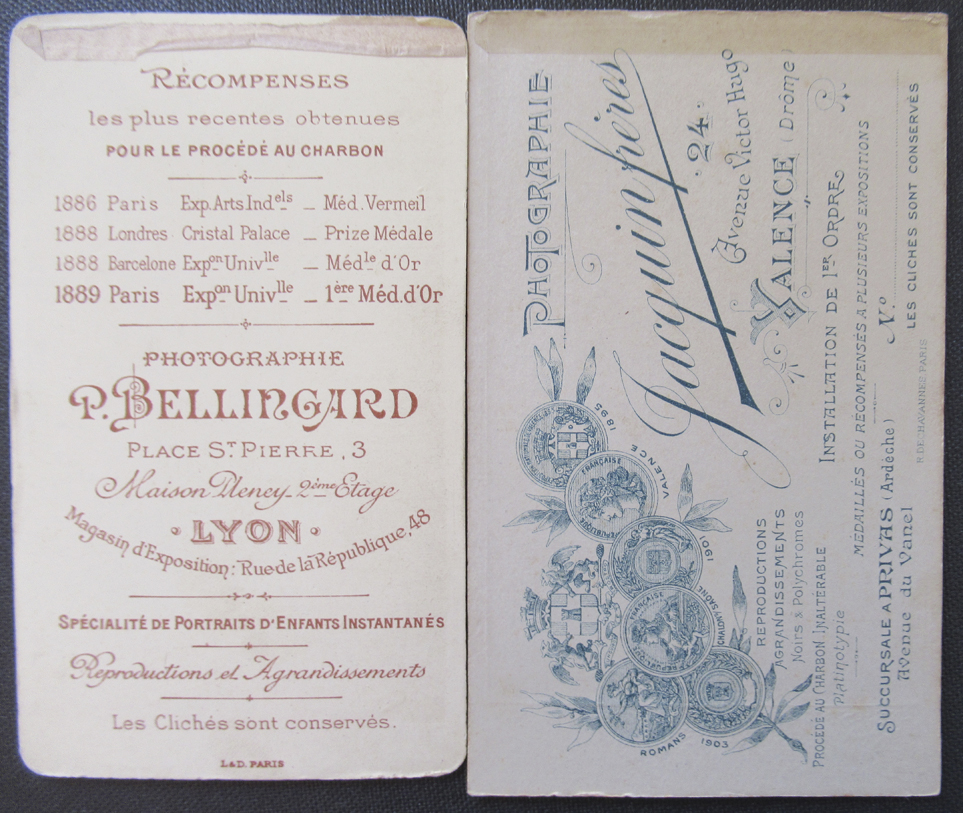 RÉCOMPENSES
les plus recentes obtenues
POUR LE PROCÉDÉ AU CHARBON
1886 Paris Exp. Arts. Ind.els _ Méd. Vermeil
1888 Londres Cristal Palace _ Prize Médale
1888 Barcelone Expon Univlle _ Médle d'Or
1889 Paris Expon Univlle _ 1ère Méd. d'Or
PHOTOGRAPHIE
P. BELLINGARD
PLACE ST. PIERRE, 3
Maison Pleney_2ème Etage
· LYON ·
Magasin d'Exposition: Rue de la République, 48
SPÉCIALITÉ DE PORTRAITS D'ENFANTS INSTANTANÉS
Reproductions et Agrandissements
Les Clichés sont conservés.
L & D. PARIS
PHOTOGRAPHIE
Jacquin frères
24.
Avenue Victor Hugo
VALENCE (Drôme)
INSTALLATION DE 1ER ORDRE
MÉDAILLÉS OU RÉCOMPENSÉS A PLUSIEURS EXPOSITIONS
N.º
LES CLICHÉS SONT CONSERVÉS
1895
VALENCE
RÉPUBLIQUE FRANÇAISE
1901
CHALON S/SAÔNE
RÉPUBLIQUE FRANÇAISE
ROMANS 1903
REPRODUCTIONS
AGRANDISSEMENTS
Noirs & Polychromes
PROCÉDÉ AU CHARBON INALTÉRABLE
Platinotypie
SUCCURSALE A PRIVAS (Ardèche)
Avenue du Vanel
PARIS